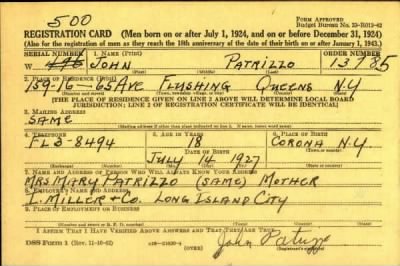 500
FORM APPROVED
Budget Bureau No. 33-R012-42
REGISTRATION CARD (Men born on or after July 1, 1924, and on or before December 31, 1924)
(Also for the registration of men as they reach the 18th anniversary of the date of their birth on or after January 1, 1943.)
SERIAL NUMBER 1. NAME (Print) ORDER NUMBER
W JOHN PATRIZZO 13785
(First) (Middle) (Last)
2. PLACE OF RESIDENCE (Print)
159-16-65 AVE FLUSHING QUEENS N.Y
[THE PLACE OF RESIDENCE GIVEN ON LINE 2 ABOVE WILL DETERMINE LOCAL BOARD
JURISDICTION; LINE 2 OF REGISTRATION CERTIFICATE WILL BE IDENTICAL]
3. MAILING ADDRESS
SAME
4. TELEPHONE 5. AGE IN YEARS 6. PLACE OF BIRTH
FL3-8494 18 CORONA N.Y.
DATE OF BIRTH
JULY 14 1927
7. NAME AND ADDRESS OF PERSON WHO WILL ALWAYS KNOW YOUR ADDRESS
MRS MARY PATRIZZO (SAME) MOTHER
8. EMPLOYER'S NAME AND ADDRESS
I. MILLER + CO. LONG ISLAND CITY
9. PLACE OF EMPLOYMENT OR BUSINESS
I AFFIRM THAT I HAVE VERIFIED ABOVE ANSWERS AND THAT THEY ARE TRUE.
DSS Form 1 (Rev. 11-16-42) (OVER) John